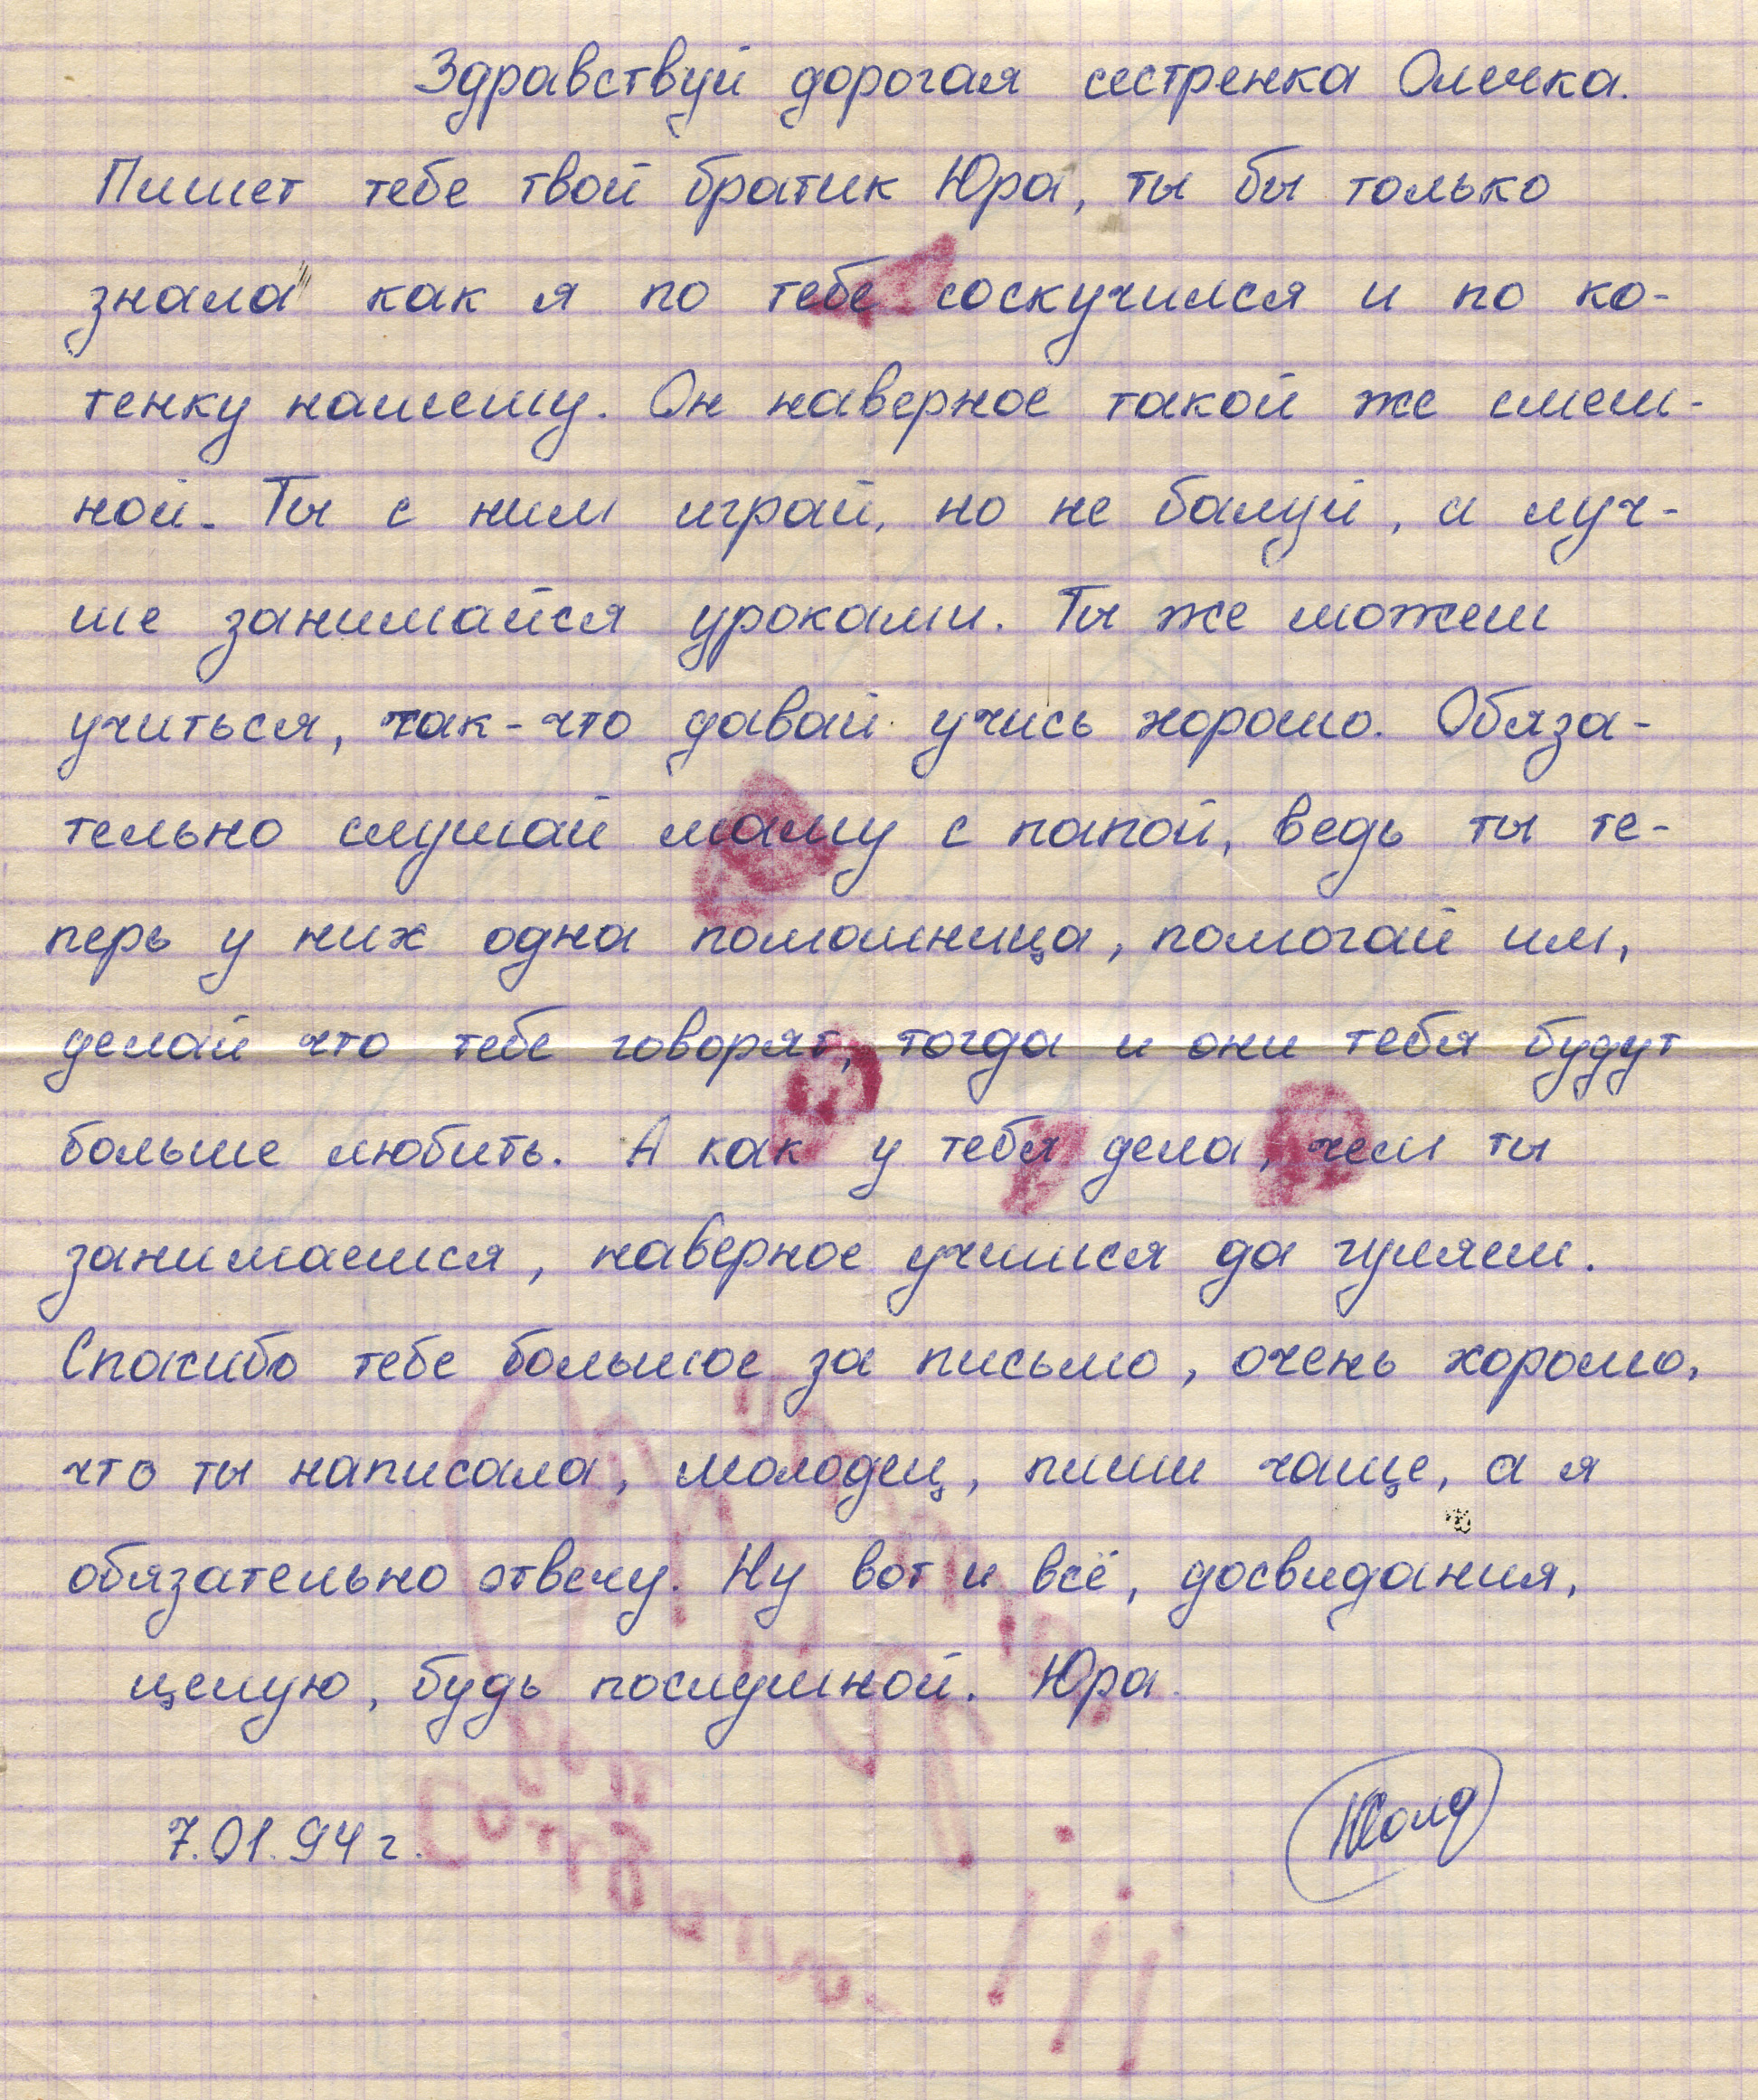 Здравствуй дорогая сестренка Олечка.
Пишет тебе твой братик Юра, ты бы только
знала как я по тебе соскучился и по ко-
тенку нашему. Он наверное такой же смеш-
ной. Ты с ним играй, но не балуй, а луч-
ше занимайся уроками. Ты же можеш
учиться, так-что давай учись хорошо. Обяза-
тельно слушай маму с папой, ведь ты те-
перь у них одна помошница, помогай им,
делай что тебе говорят, тогда и они тебя будут
больше любить. А как у тебя дела, чем ты
занимаешся, наверное учишся да гуляеш.
Спасибо тебе большое за письмо, очень хорошо,
что ты написала, молодец, пиши чаще, а я
обязательно отвечу. Ну вот и всё, досвидания,
целую, будь послушной. Юра.
7.01.94 г.